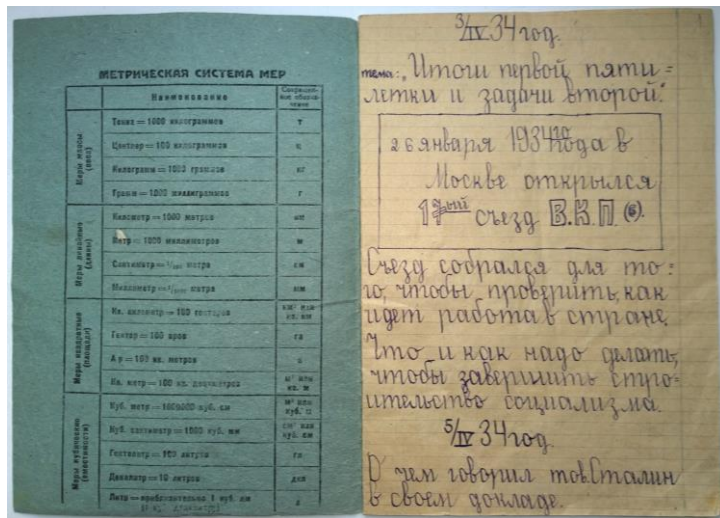 МЕТРИЧЕСКАЯ СИСТЕМА МЕР
Наименование
Сокращен-
ное обозна-
чение
Меры массы
(веса)
Тонна = 1000 килограммов т
Центнер = 100 килограммов ц
Килограмм = 1000 граммов кг
Грамм = 1000 миллиграммов г
Меры линейные
(длины)
Километр = 1000 метров км
Метр = 1000 миллиметров м
Сантиметр = 1/100 метра см
Миллиметр = 1/1000 метра мм
Меры квадратные
(площади)
Кв. километр = 100 гектаров км² или
кв. км
Гектар = 100 аров га
Ар = 100 кв. метров а
Кв. метр = 100 кв. дециметров м² или
кв. м
Меры кубические
(вместимости)
Куб. метр = 1000000 куб. см м³ или
куб. м
Куб. сантиметр = 1000 куб. мм см³ или
куб. см
Гектолитр = 100 литров гл
Декалитр = 10 литров дкл
Литр = приблизительно 1 куб. л
3/IV 34 год.
тема: „Итоги первой пяти=
летки и задачи второй."
26 января 1934го года в
Москве открылся
17ый съезд В.К.П.(б).
Съезд собрался для то=
го, чтобы проверить, как
идет работа в стране.
Что и как надо делать,
чтобы завершить стро-
ительство социализма.
5/IV 34 год.
О чем говорил тов. Сталин
в своем докладе.